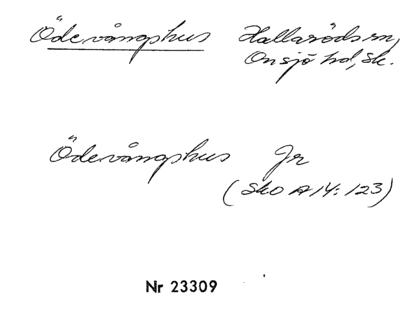 Ödevångshus Hallaröds sn,
Onsjö hd, Sk.
Ödevångshus Jr
(SkO A14:123)
Nr 23309